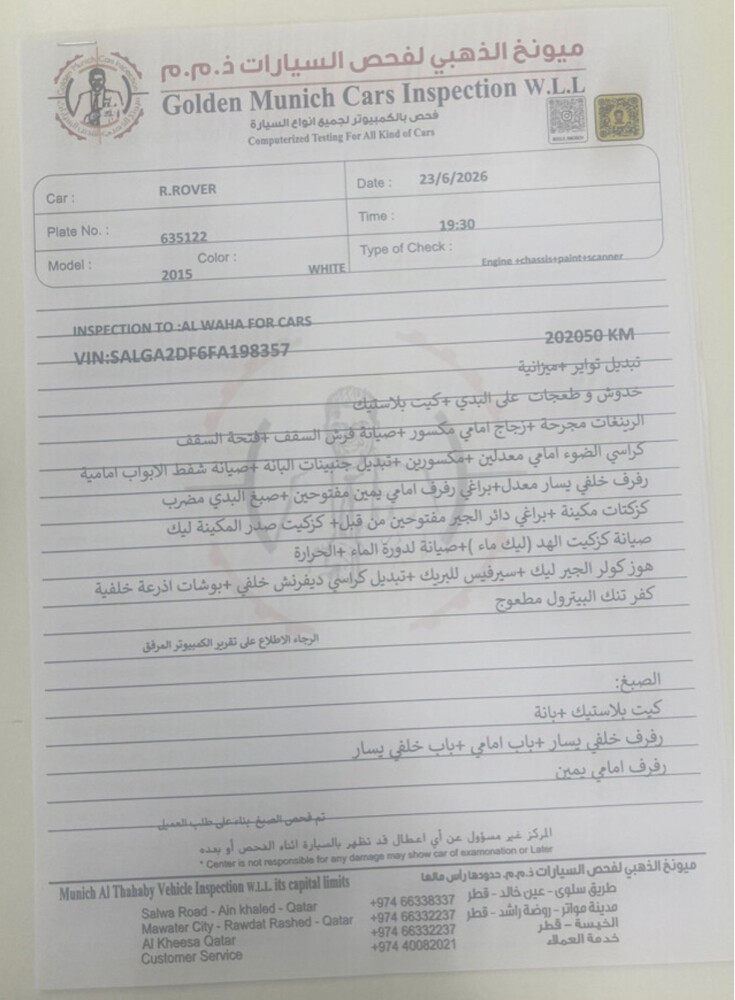 ميونخ الذهبي لفحص السيارات ذ.م.م
Golden Munich Cars Inspection W.L.L
فحص بالكمبيوتر لجميع انواع السيارة
Computerized Testing For All Kind of Cars
Car : R.ROVER
Date : 23/6/2026
Plate No. : 635122
Time : 19:30
Model : 2015 Color : WHITE
Type of Check : Engine +chassis+paint+scanner
INSPECTION TO :AL WAHA FOR CARS
VIN:SALGA2DF6FA198357 202050 KM
تبديل تواير +ميزانية
خدوش و طعجات على البدي +كيت بلاستيك
الرينغات مجرحة +زجاج امامي مكسور +صيانة فرش السقف +فتحة السقف
كراسي الضوء امامي معدلين +مكسورين +تبديل جنبينات البانة +صيانة شفط الابواب امامية
رفرف خلفي يسار معدل+براغي رفرف امامي يمين مفتوحين +صبغ البدي مضرب
كزكتات مكينة +براغي دائر الجير مفتوحين من قبل+ كزكيت صدر المكينة ليك
صيانة كزكيت الهد (ليك ماء )+صيانة لدورة الماء +الحرارة
هوز كولر الجير ليك +سيرفيس للبريك +تبديل كراسي ديفرنش خلفي +بوشات اذرعة خلفية
كفر تنك البيترول مطعوج
الرجاء الاطلاع على تقرير الكمبيوتر المرفق
الصبغ:
كيت بلاستيك +بانة
رفرف خلفي يسار +باب امامي +باب خلفي يسار
رفرف امامي يمين
تم فحص الصبغ بناء على طلب العميل
المركز غير مسؤول عن أي اعطال قد تظهر بالسيارة اثناء الفحص أو بعده
* Center is not responsible for any damage may show car of examonation or Later
Munich Al Thahaby Vehicle Inspection W.L.L. its capital limits
ميونخ الذهبي لفحص السيارات ذ.م.م. حدودها رأس مالها
Salwa Road - Ain khaled - Qatar +974 66338337 طريق سلوى - عين خالد - قطر
Mawater City - Rawdat Rashed - Qatar +974 66332237 مدينة مواتر - روضة راشد - قطر
Al Kheesa Qatar +974 66332237 الخيسة - قطر
Customer Service +974 40082021 خدمة العملاء